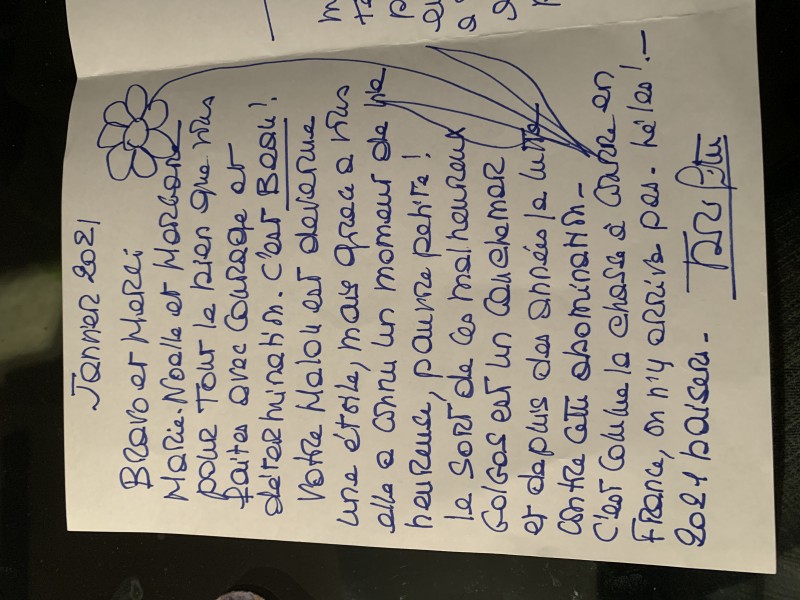 Janvier 2021
Bravo et Merci
Marie-Noelle et Morgane
pour Tout le bien que vous
faites avec courage et
determination. C'est BEAU!
Votre Malou est devenue
une étoile, mais grace a vous
elle a connu un moment de vie
heureuse, pauvre petite!
le sort de ces malheureux
Galgos est un cauchemar
et depuis des années je lutte
contre cette abomination-
C'est comme la chasse à courre en
France, on n'y arrive pas. hélas!-
2021 baisers.